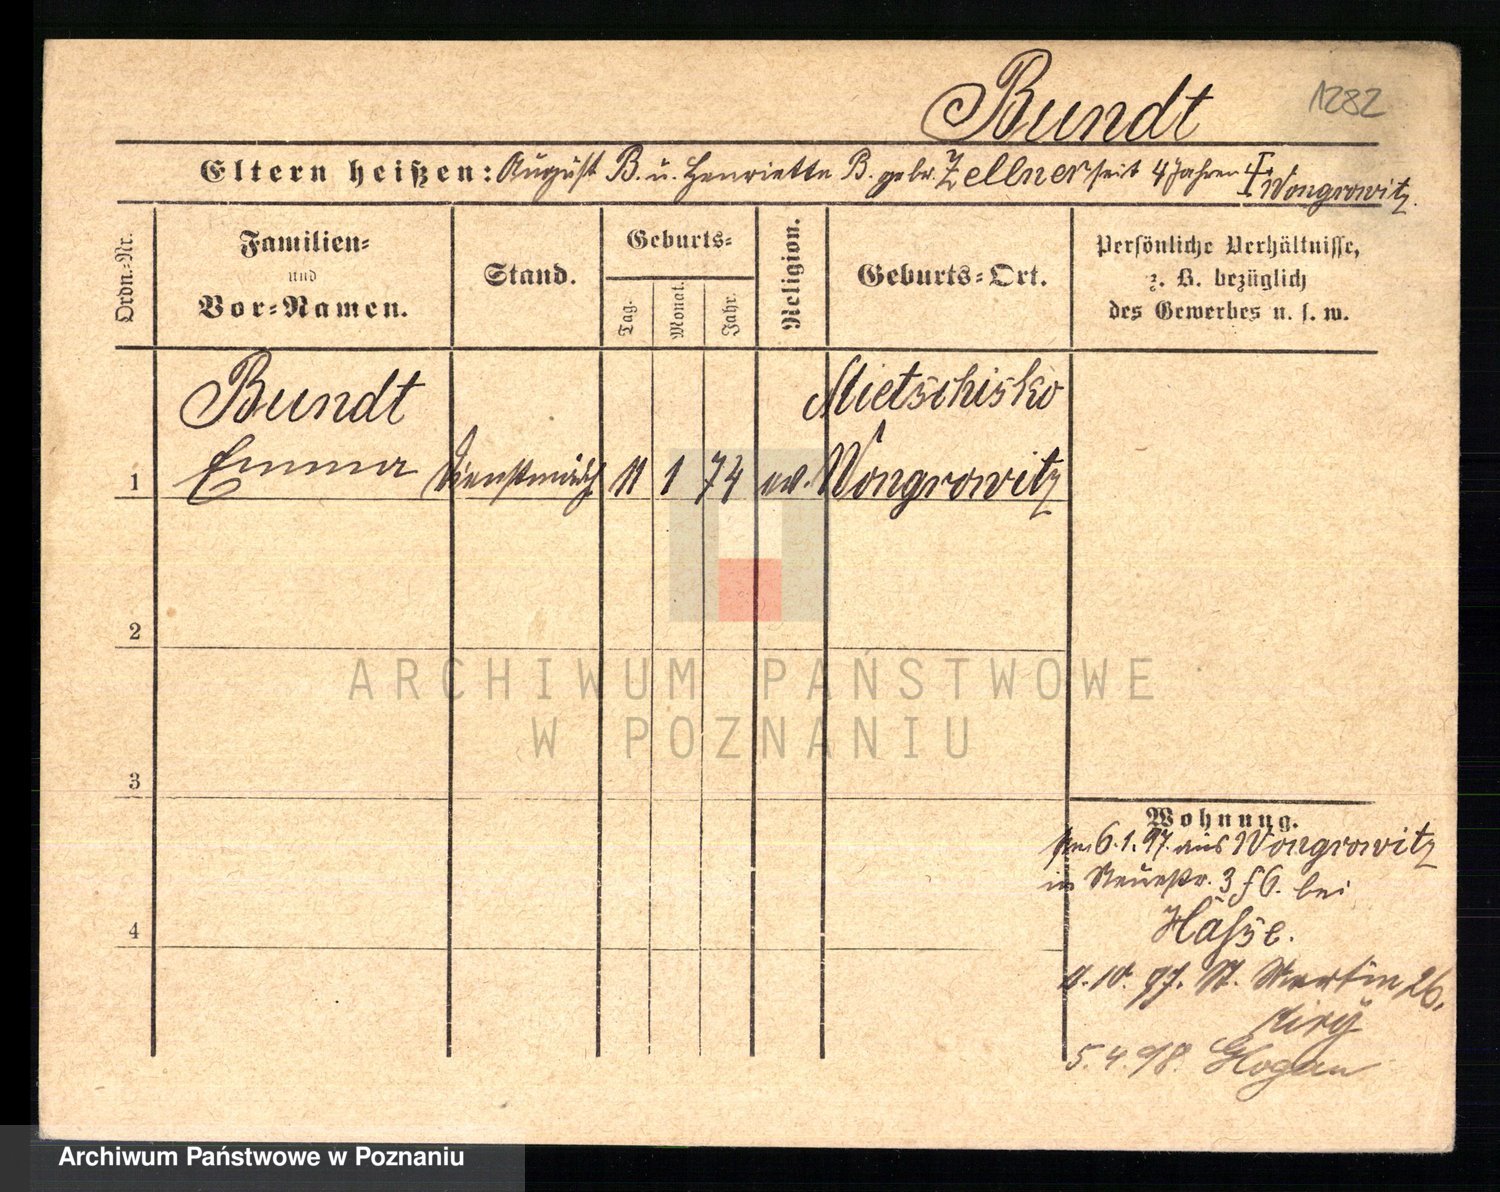 Bundt 1282
Eltern heißen: August B. u. Henriette B. geb. Zellner seit 4 Jahren Wongrowitz.
Ordn.-Nr.
Familien-
und
Vor-Namen.
Stand.
Geburts-
Tag.
Monat.
Jahr.
Religion.
Geburts-Ort.
Persönliche Verhältnisse,
z. B. bezüglich
des Gewerbes u. s. w.
Bundt Mietschisko
1 Emma Dienstmädch 11 1 74 ev. Wongrowitz
2
ARCHIWUM PAŃSTWOWE
W POZNANIU
3
Wohnung.
6.1.97. aus Wongrowitz
in Neuestr. 3 bei
Hässe.
10. 97. St. Martin 26.
5.4.98. Glogau
4
Archiwum Państwowe w Poznaniu